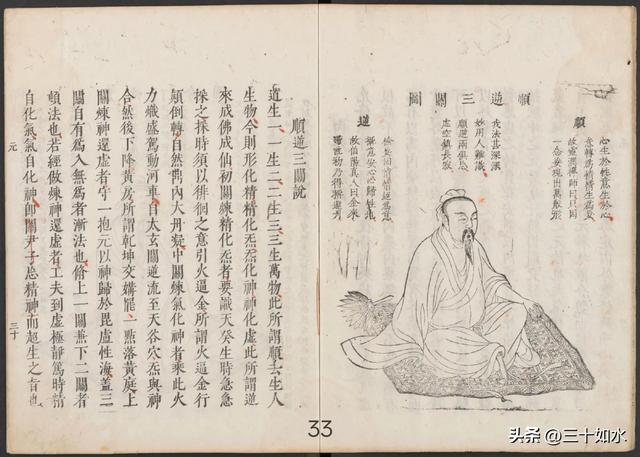 順逆三關圖
順
心生於性意生於心
意轉為情情生為妄
故靈潤禪師曰只因
一念妄現出萬般形
我法甚深深
妙用人難識
順逆兩俱忘
虛空鎮長寂
逆
檢妄回情情返為意
攝意安心心歸性地
故伯陽真人曰金來
歸性初乃得稱還丹
順逆三關說
道生一一生二二生三三生萬物此所謂順去生人
生物今則形化精精化炁炁化神神化虛此所謂逆
來成佛成仙初關練精化炁者要識天癸生時急急
採之採時須以徘徊之意引火逼金所謂火逼金行
顛倒轉自然鼎內大丹凝中關練氣化神者乘此火
力熾盛駕動河車自太玄關逆流至天谷穴炁與神
合然後下降黃房所謂乾坤交媾罷一點落黃庭上
關練神還虛者守一抱元以神歸於毘盧性海蓋三
關自有為入無為者漸法也修上一關兼下二關者
頓法也若徑做煉神還虛者工夫到虛極靜篤時精
自化氣氣自化神即關尹子忘精神而超生之旨也
元
三十
33
头条 @三十如水